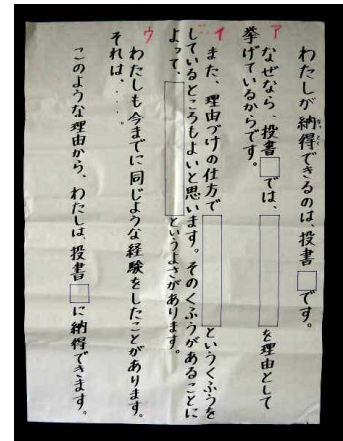 わたしが納得できるのは、投書□です。
なっとく
ア
なぜなら、投書□では、□を理由として
挙げているからです。
イ
また、理由づけの仕方で□というくふうを
しているところもよいと思います。そのくふうがあることに
よって、□というよさがあります。
ウ
わたしも今までに同じような経験をしたことがあります。
それは、・・・。
このような理由から、わたしは、投書□に納得できます。